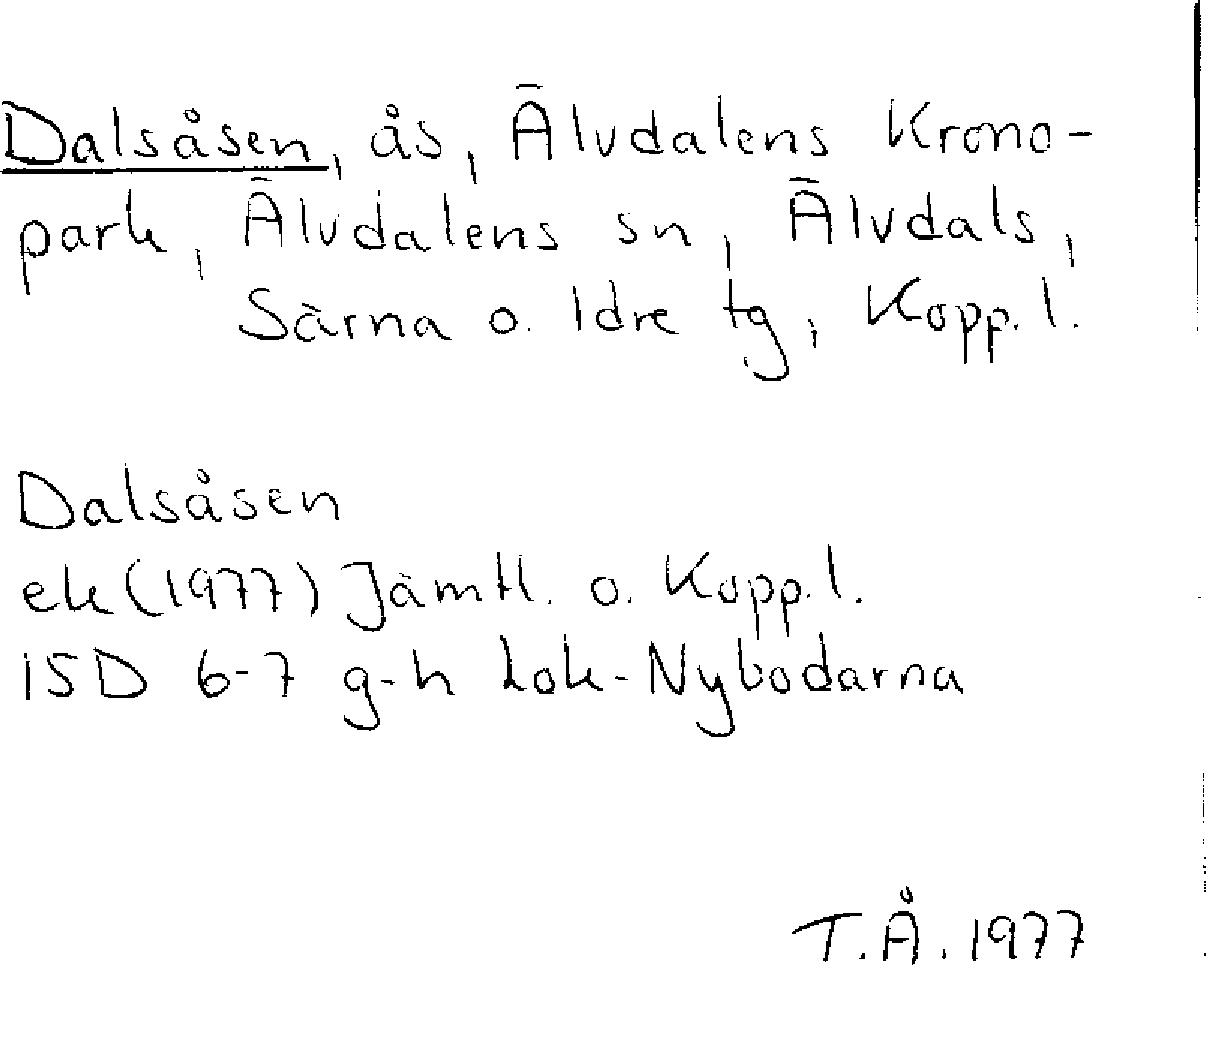 Dalsåsen, ås, Älvdalens Krono-
park, Älvdalens sn, Älvdals,
Särna o. Idre tg, Kopp. l.
Dalsåsen
ek (1977) Jämtl. o. Kopp. l.
15D 6-7 g-h Lok-Nybodarna
T.Å. 1977